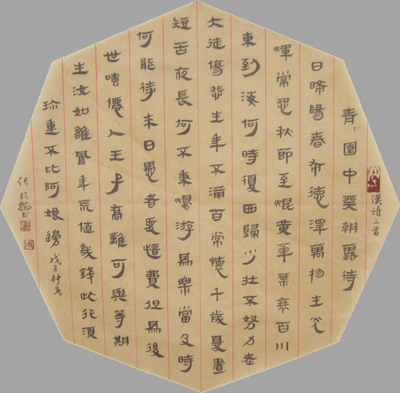 漢詩三首
青〻園中葵朝露待
日晞陽春布德澤萬物生光
輝常恐秋節至焜黃華葉衰百川
東到海何時復西歸少壯不努力老
大徒傷悲生年不滿百常懷千歲憂晝
短苦夜長何不秉燭游為樂當及時
何能待来日愚者愛惜費但為後
世嗤僊人王子喬難可與等期
生汝如雛鳳年荒值幾錢此行須
珍重不比阿娘邊 戊子仲春